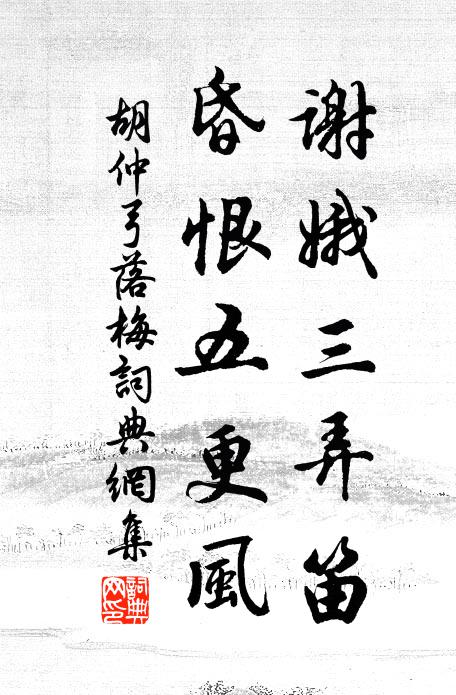 謝娥三弄笛
昏恨五更風
胡仲弓落梅詞典網集
詞典
网印